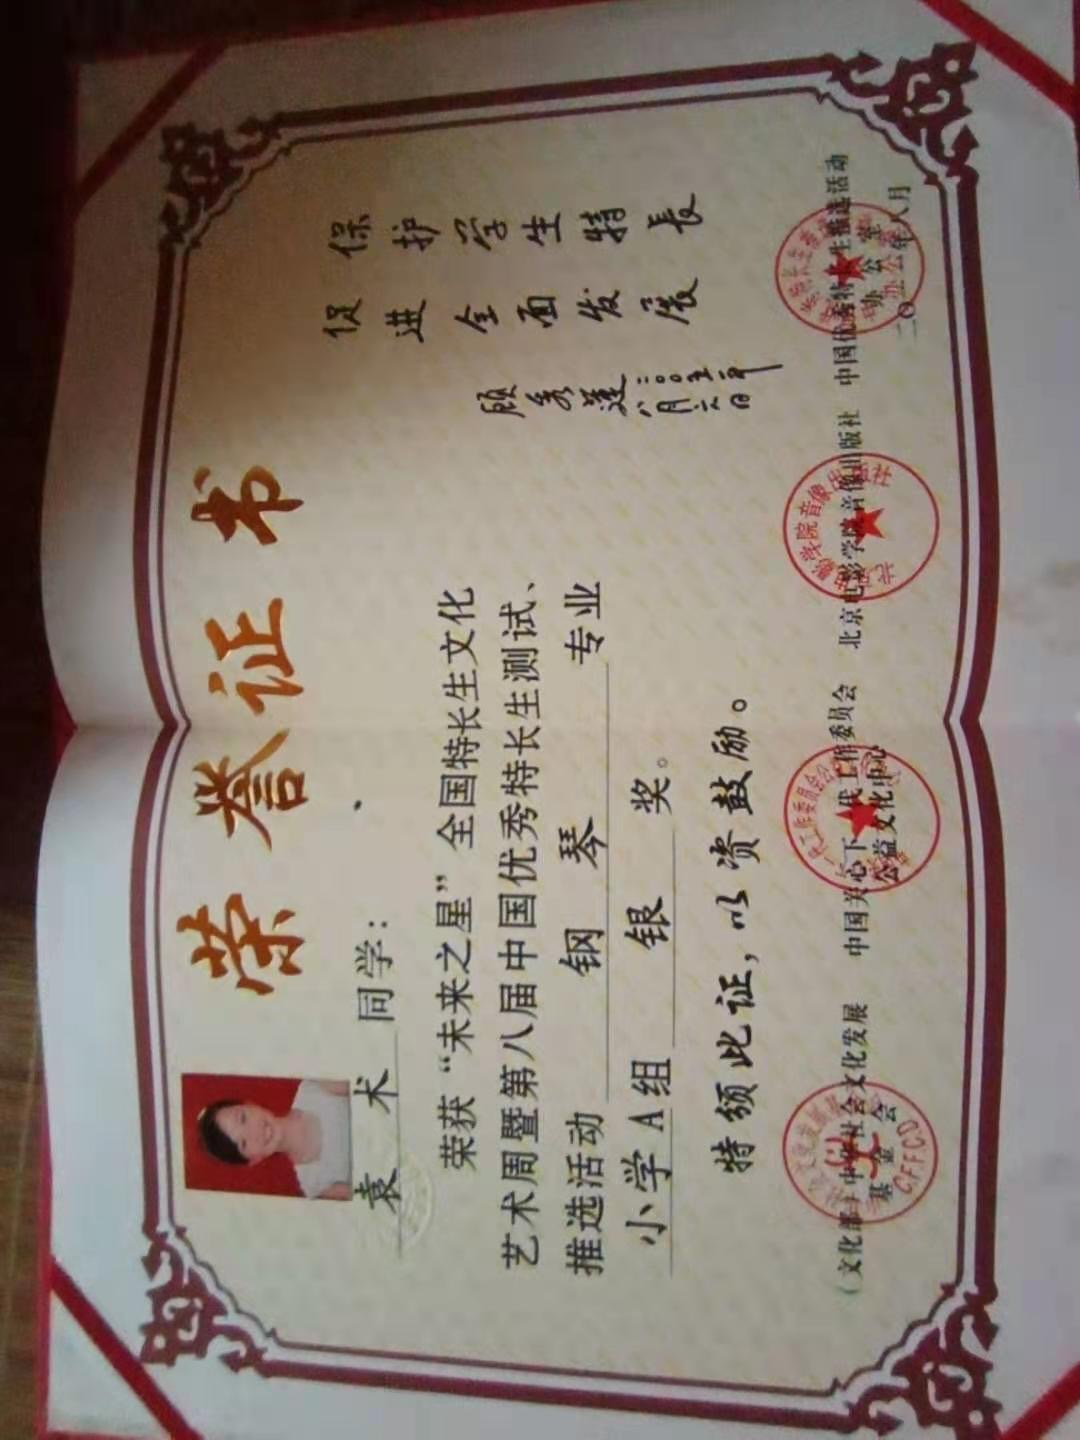 荣誉证书
袁术 同学：
荣获“未来之星”全国特长生文化
艺术周暨第八届中国优秀特长生测试、
推选活动 钢琴 专业
小学A组 银 奖。
特颁此证，以资鼓励。
保护学生特长
促进全面发展
顾秀莲 二〇〇五年
八月六日
（文化部）中华社会文化发展
基金会
中国关心下一代工作委员会
公益文化中心
北京电影学院音像出版社
中国优秀特长生推选活动
办公室
八月
CFFCD